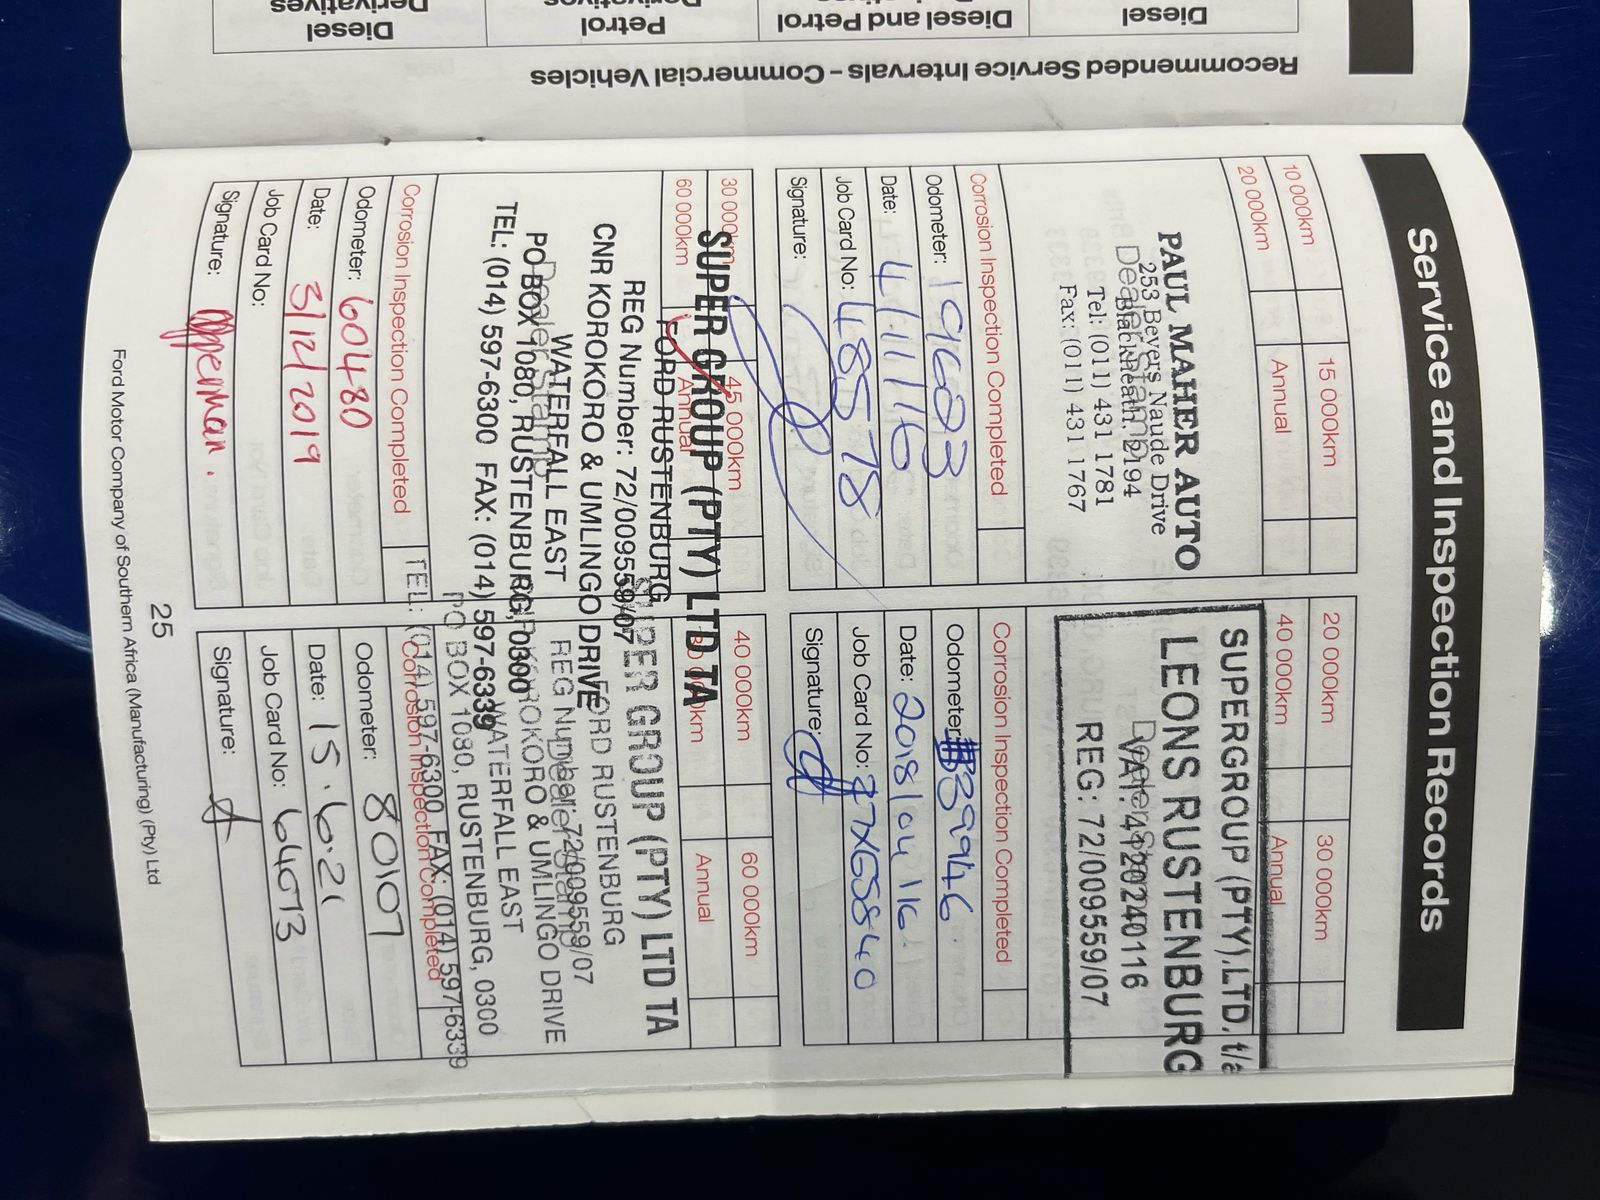 Service and Inspection Records
10 000km
15 000km
20 000km
Annual
PAUL MAHER AUTO
253 Beyers Naude Drive
Dealer Stamp
Blackheath. 2194
Tel: (011) 431 1781
Fax: (011) 431 1767
Corrosion Inspection Completed
Odometer: 19603
Date: 4/11/16
Job Card No: 48578
Signature:
20 000km
30 000km
40 000km
Annual
SUPERGROUP (PTY).LTD. t/a
LEONS RUSTENBURG
Dealer Stamp
VAT: 4120240116
REG: 72/009559/07
Corrosion Inspection Completed
Odometer: 39946
Date: 2018/04/16.
Job Card No:
Signature:
30 000km
45 000km
60 000km
Annual
SUPER GROUP (PTY) LTD TA
FORD RUSTENBURG
REG Number: 72/009559/07
CNR KOROKORO & UMLINGO DRIVE
WATERFALL EAST
Dealer Stamp
PO BOX 1080, RUSTENBURG, 0300
TEL: (014) 597-6300 FAX: (014) 597-6339
Corrosion Inspection Completed
Odometer: 60480
Date: 3/12/2019
Job Card No:
Signature: Opperman.
40 000km
60 000km
80 000km
Annual
SUPER GROUP (PTY) LTD TA
FORD RUSTENBURG
REG Number: 72/009559/07
Dealer Stamp
KOROKORO & UMLINGO DRIVE
WATERFALL EAST
PO BOX 1080, RUSTENBURG, 0300
TEL: (014) 597-6300 FAX: (014) 597-6339
Corrosion Inspection Completed
Odometer: 80107
Date: 15.6.21
Job Card No: 64073
Signature:
25
Ford Motor Company of Southern Africa (Manufacturing) (Pty) Ltd
Recommended Service Intervals – Commercial Vehicles
Diesel
Diesel and Petrol
Petrol
Derivatives
Diesel
Derivatives